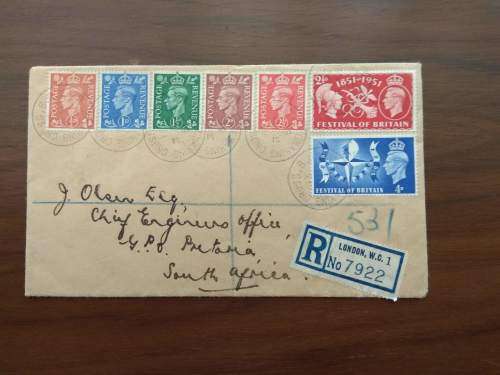 POSTAGE REVENUE ½D
POSTAGE REVENUE 1D
POSTAGE REVENUE 1½D
POSTAGE REVENUE 2D
POSTAGE REVENUE 2½D
1851-1951
FESTIVAL OF BRITAIN
FESTIVAL OF BRITAIN 4D
J. Olsen Esq,
Chief Engineers Office,
G.P.O Pretoria,
South Africa.
531
R
LONDON, W.C. 1
No 7922